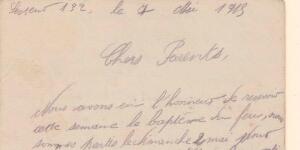 Secteur 132, le 7 Mai 1915
Chers Parents,
Nous avons eu l'honneur de recevoir
cette semaine le baptême du feu, nous
sommes partis le dimanche 2 mai pour